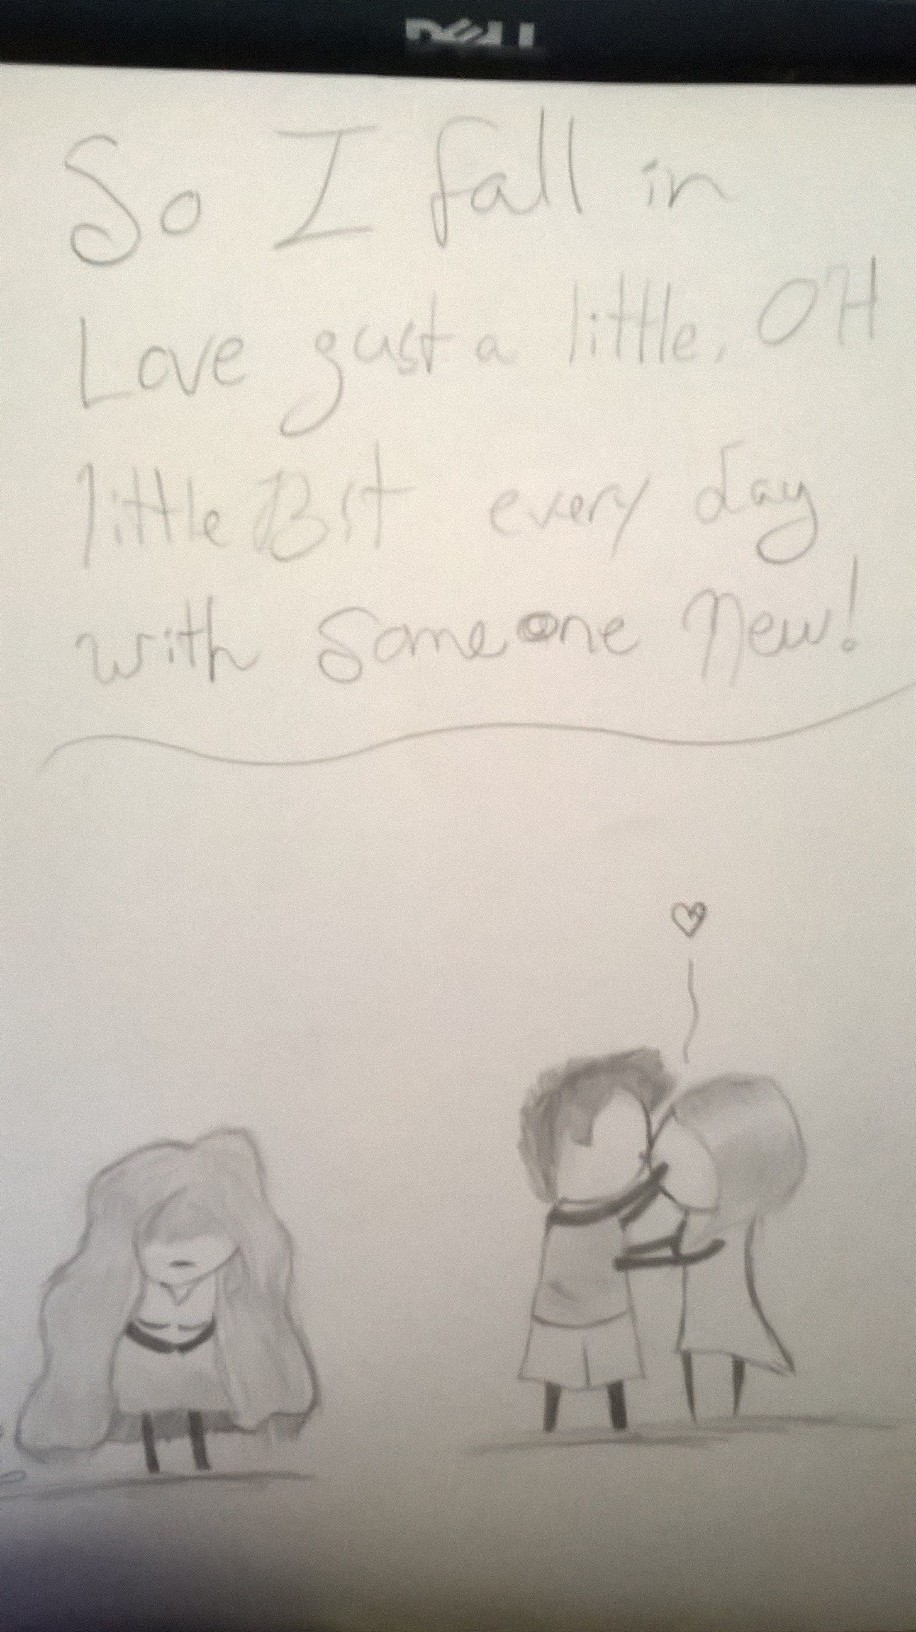 DELL
So I fall in
Love just a little, OH
little Bit every day
with Someone New!